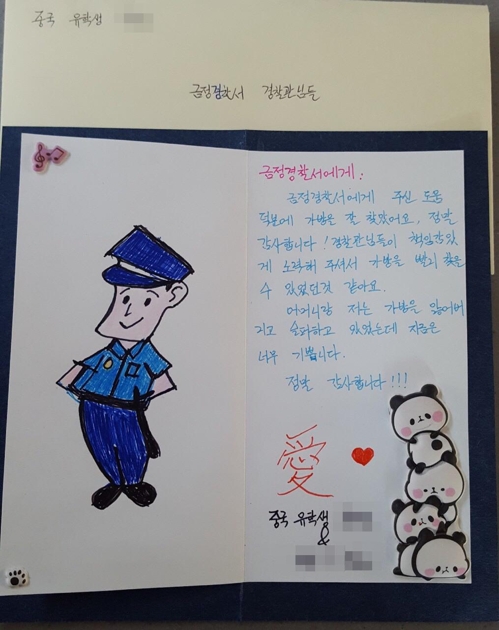 중국 유학생
금정경찰서 경찰관님들
금정경찰서에게:
금정경찰서에게 주신 도움
덕분에 가방은 잘 찾았어요. 정말
감사합니다! 경찰관님들이 책임감있
게 노력해 주셔서 가방을 빨리 찾을
수 있었던것 같아요.
어머니랑 저는 가방을 잃어버
리고 슬퍼하고 있었는데 지금은
너무 기쁩니다.
정말 감사합니다!!!
愛
중국 유학생
&